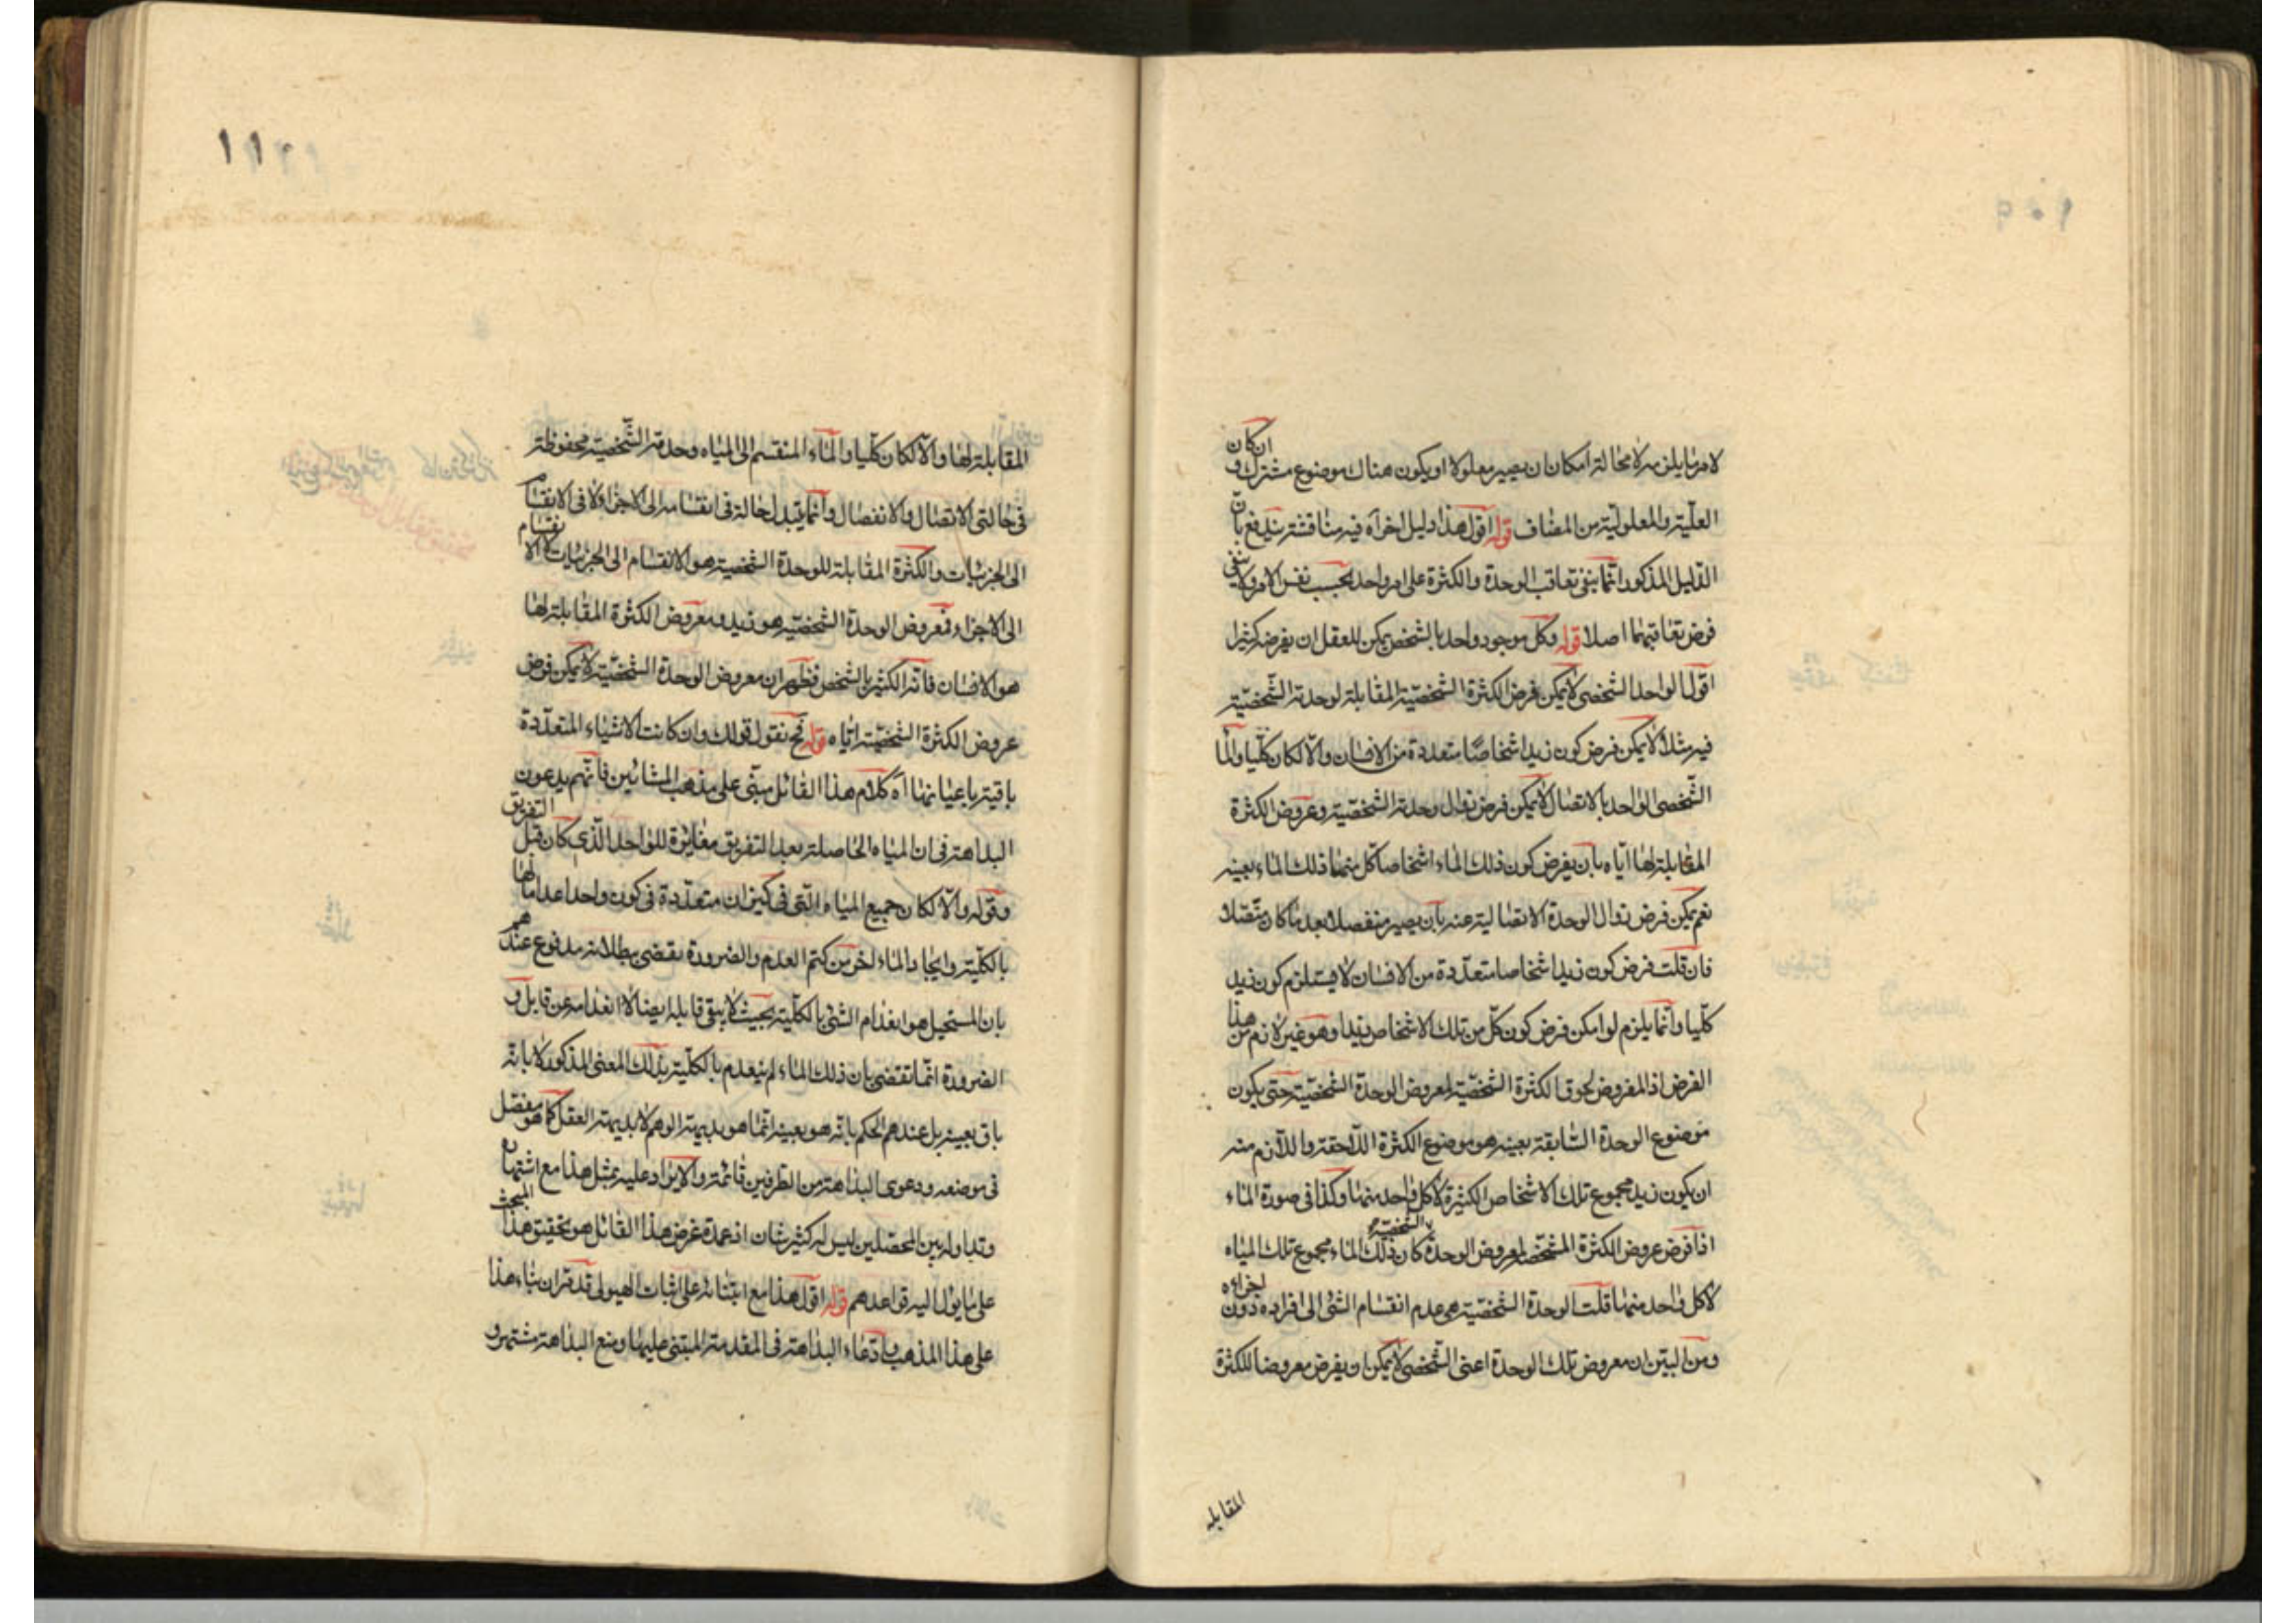 لامر ما يلزمه لا محالة امكان ان يصير معلولا او يكون هناك موضوع مشترك و ان كان
العلية والمعلولية من المضاف قوله اقول هذا دليل اخر اه فيه مناقشة يندفع بان
الدليل المذكور انما ينفى تعاقب الوحدة والكثرة على امر واحد بحسب نفس الامر ولا ينفى
فرض تعاقبهما اصلا قوله وكل موجود واحد بالشخص يمكن للعقل ان يفرضه كثيرا
اقول الواحد الشخصى لا يمكن فرض الكثرة الشخصية المقابلة لوحدته الشخصية
فيه مثلا لا يمكن فرض كون زيد اشخاصا متعددة من الانسان والا لكان كليا والماء
الشخصى الواحد بالاتصال لا يمكن فرض زوال وحدته الشخصية وعروض الكثرة
المقابلة لها اياه بان يفرض كون ذلك الماء اشخاصا كل منهما ذلك الماء بعينه
نعم يمكن فرض زوال الوحدة الاتصالية عنه بان يصير منفصلا بعد ما كان متصلا
فان قلت فرض كون زيد اشخاصا متعددة من الانسان لا يستلزم كون زيد
كليا وانما يلزم لو امكن فرض كون كل من تلك الاشخاص زيدا وهو غير لازم من هذا
الفرض اذ المفروض لحوق الكثرة الشخصية لمعروض الوحدة الشخصية حتى يكون
موضوع الوحدة السابقة بعينه هو موضوع الكثرة اللاحقة واللازم منه
ان يكون زيد مجموع تلك الاشخاص الكثيرة لا كل واحد منهما وكذا فى صورة الماء
اذا فرض عروض الكثرة الشخصية لمعروض الوحدة الشخصية كان ذلك الماء مجموع تلك المياه
لا كل واحد منهما قلت الوحدة الشخصية هى عدم انقسام الشئ الى افراده دون اجزاءه
ومن البين ان معروض تلك الوحدة اعنى الشخصى لا يمكن ان يفرض معروضا للكثرة
المقابله
١١٠
المقابلة لها والا لكان كليا والماء المنقسم الى المياه وحدته الشخصية محفوظة
فى حالتى الاتصال والانفصال وانما يتبدل حالة فى انقسامه الى الاجزاء لا فى الانقسام
الى الجزئيات والكثرة المقابلة للوحدة الشخصية هو الانقسام الى الجزئيات لا الانقسام
الى الاجزاء فمعروض الوحدة الشخصية هو زيد ومعروض الكثرة المقابلة لها
هو الانسان فانه الكثير بالشخص فظهر ان معروض الوحدة الشخصية لا يمكن فرض
عروض الكثرة الشخصية اياه قوله نقول قولك وان كانت الاشياء المتعددة
باقية باعيانها اه كلام هذا القائل مبنى على مذهب المشائين فانهم يدعون
البداهة فى ان المياه الحاصلة بعد التفريق مغايرة للواحد الذى كان قبل التفريق
وقوله والا لكان جميع المياه التى فى كيزان متعددة فى كون واحد اعداما لها
بالكلية وايجادا لماء اخر من كتم العدم والضرورة تقضى ببطلانه مدفوع عندهم
بان المستحيل هو انعدام الشئ بالكلية بحيث لا يبقى قابله ايضا لا انعدامه عن قابل و
الضرورة انما تقتضى بان ذلك الماء لم ينعدم بالكلية بذلك المعنى المذكور لا بانه
باق بعينه بل عندهم الحكم بانه هو بعينه انما هو بديهة الوهم لا بديهة العقل كما هو مفصل
فى موضعه ودعوى البداهة من الطرفين قائمة والايراد عليه بمثل هذا مع اشتهاره
وتداوله بين المحصلين ليس له كثير شان اذ عمدة غرض هذا القائل هو تحقيق هذا المبحث
على ما يؤل اليه قواعدهم قوله اقول هذا مع ابتنائه على اثبات الهيولى قد مر ان بناء هذا
على هذا المذهب وادعاء البداهة فى المقدمة المبتنى عليها ومنع البداهة مشتهر و